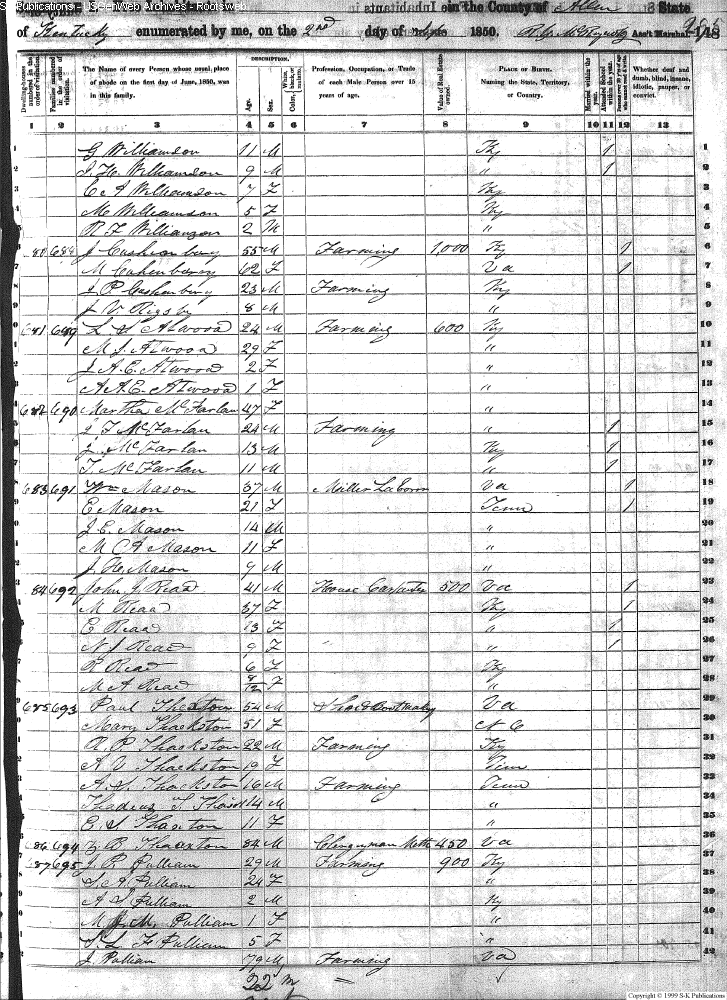 S-K Publications - USGenWeb Archives - Rootsweb
Inhabitants in the County of Allen State
of Kentucky enumerated by me, on the 2nd day of 1850. Ass't Marshal. 148
Dwelling-houses numbered in the order of visitation.
Families numbered in the order of visitation.
The Name of every Person whose usual place of abode on the first day of June, 1850, was in this family.
DESCRIPTION.
Age.
Sex.
Color, White, black, or mulatto.
Profession, Occupation, or Trade of each Male Person over 15 years of age.
Value of Real Estate owned.
PLACE OF BIRTH. Naming the State, Territory, or Country.
Married within the year.
Attended School within the year.
Persons over 20 y'rs of age who cannot read & write.
Whether deaf and dumb, blind, insane, idiotic, pauper, or convict.
1 2 3 4 5 6 7 8 9 10 11 12 13
1 G Williamson 11 M Ky / 1
2 J H Williamson 9 M " / 2
3 C A Williamson 7 F Ky 3
4 M Williamson 5 F Ky 4
5 R F Williamson 2 M " 5
6 688 J 55 M Farming 1,000 Ky / 6
7 M 62 F Va / 7
8 J P 23 M Farming Ky 8
9 J V Rigsby 8 M " 9
10 681 689 L S Atwood 24 M Farming 600 Ky 10
11 M J Atwood 29 F " 11
12 J A E Atwood 2 F " 12
13 A A E Atwood 1 F " 13
14 682 690 Martha McFarlan 47 F " 14
15 J T McFarlan 24 M Farming " / 15
16 J McFarlan 13 M Ky / 16
17 T McFarlan 11 M " / 17
18 683 691 Wm Mason 37 M Va / 18
19 E Mason 21 F Tenn / 19
20 J E Mason 14 M " 20
21 M C A Mason 11 F " 21
22 J H Mason 9 M " 22
23 84 692 John J Read 41 M House Carpenter 500 Va / 23
24 M Read 37 F Ky / 24
25 E Read 13 F " / 25
26 N J Read 9 F " / 26
27 R Read 6 F Ky 27
28 M A Read 8/12 F " 28
29 685 693 Paul Thaxton 54 M Va 29
30 Mary Thackston 51 F N C 30
31 R P Thackston 22 M Farming Ky 31
32 A V Thackston 19 F Tenn 32
33 A S Thackston 16 M Farming Tenn 33
34 Thadeus T 14 M " 34
35 E S Thaxton 11 F " 35
36 86 694 B Thaxton 84 M Clergyman Meth 450 Va 36
37 87 695 J R Pulliam 29 M Farming 900 Ky 37
38 Pulliam 24 F " 38
39 A S Pulliam 2 M Ky 39
40 M M Pulliam 1 F " 40
41 S F Pulliam 5 F " 41
42 J Pulliam 79 M Farming Va 42
22 M
Copyright © 1999 S-K Publications